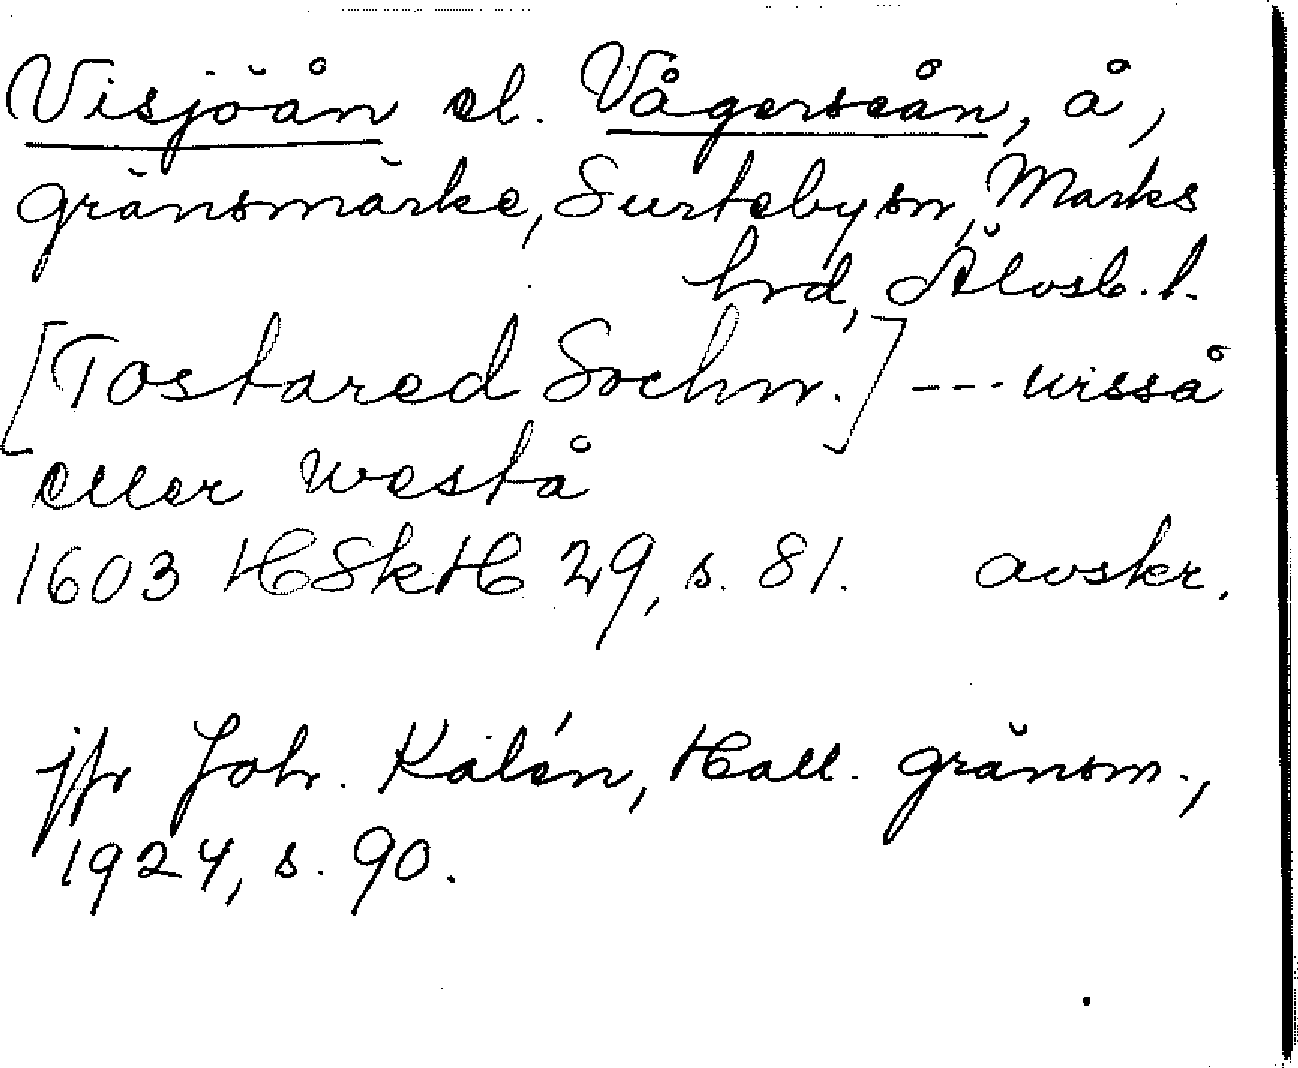 Visjöån el. Vågerseån, å,
gränsmärke, Surteby sn, Marks
hrd, Älvsb. l.
[Tostared Sochn.] --- wisså
eller westå
1603 HSkH 29, s. 81. avskr.
jfr Joh. Kalén, Hall. gränsm.,
1924, s. 90.